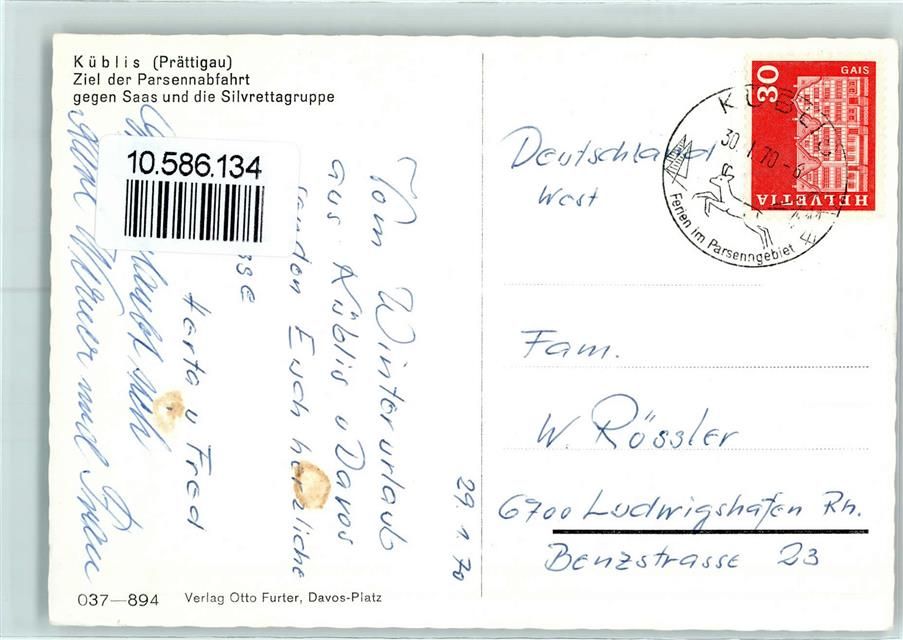 Küblis (Prättigau)
Ziel der Parsennabfahrt
gegen Saas und die Silvrettagruppe
10.586.134
29.1.70
Vom Winterurlaub
aus Küblis u Davos
senden Euch herzliche
Herta u Fred
Anne Werner und Frau
037—894
Verlag Otto Furter, Davos-Platz
30
GAIS
HELVETIA
KÜBLIS
30.1.70-6
Ferien im Parsenngebiet
Deutschland
West
Fam.
W. Rössler
6700 Ludwigshafen Rh.
Benzstrasse 23